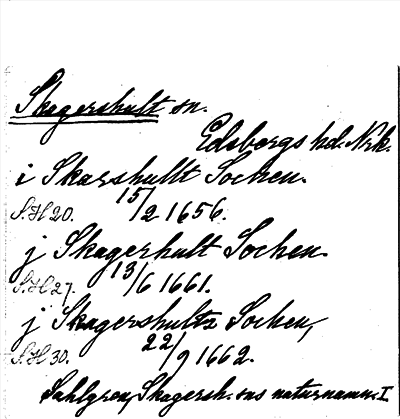 Skagershult sn.
Edsbergs hd. Nrk.
i Skarshullt Sochen.
S.H 20. 15/2 1656.
j Skagerhult Sochen.
S.H 27. 13/6 1661.
j Skagershultz Sochen,
S.H 30. 22/9 1662.
Sahlgren, Skagersh. sns naturnamn. I